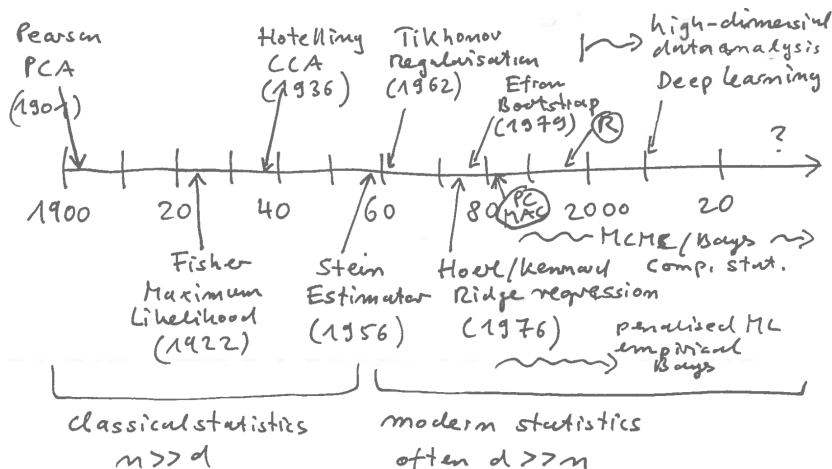 Pearson
PCA
(1901)
Hotelling
CCA
(1936)
Tikhonov
Regularisation
(1962)
Efron
Bootstrap
(1979)
R
high-dimensial
data analysis
Deep learning
?
1900
20
40
60
80
2000
20
PC
MAC
Fisher
Maximum
Likelihood
(1922)
Stein
Estimator
(1956)
Hoerl/Kennard
Ridge regression
(1976)
MCMC/Bays
Comp. stat.
penalised ML
empirical
Bays
classical statistics
n>>d
modern statistics
often d>>n